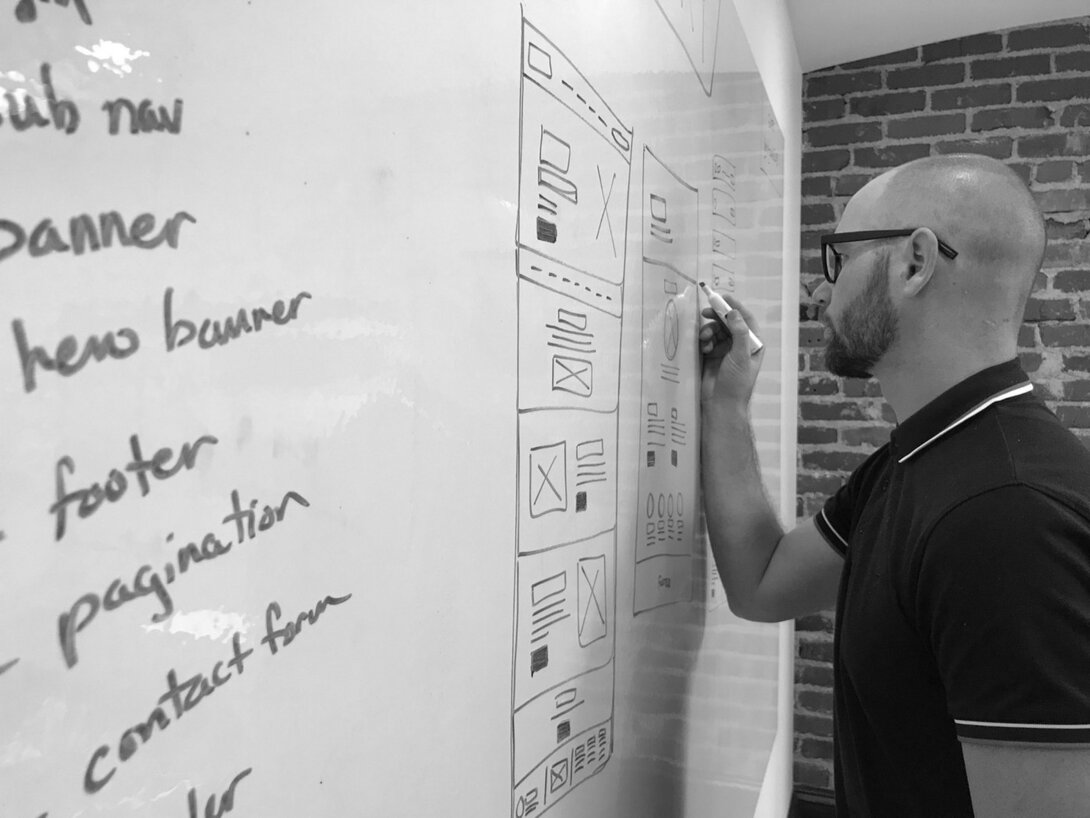 sub nav
banner
hero banner
footer
pagination
contact form